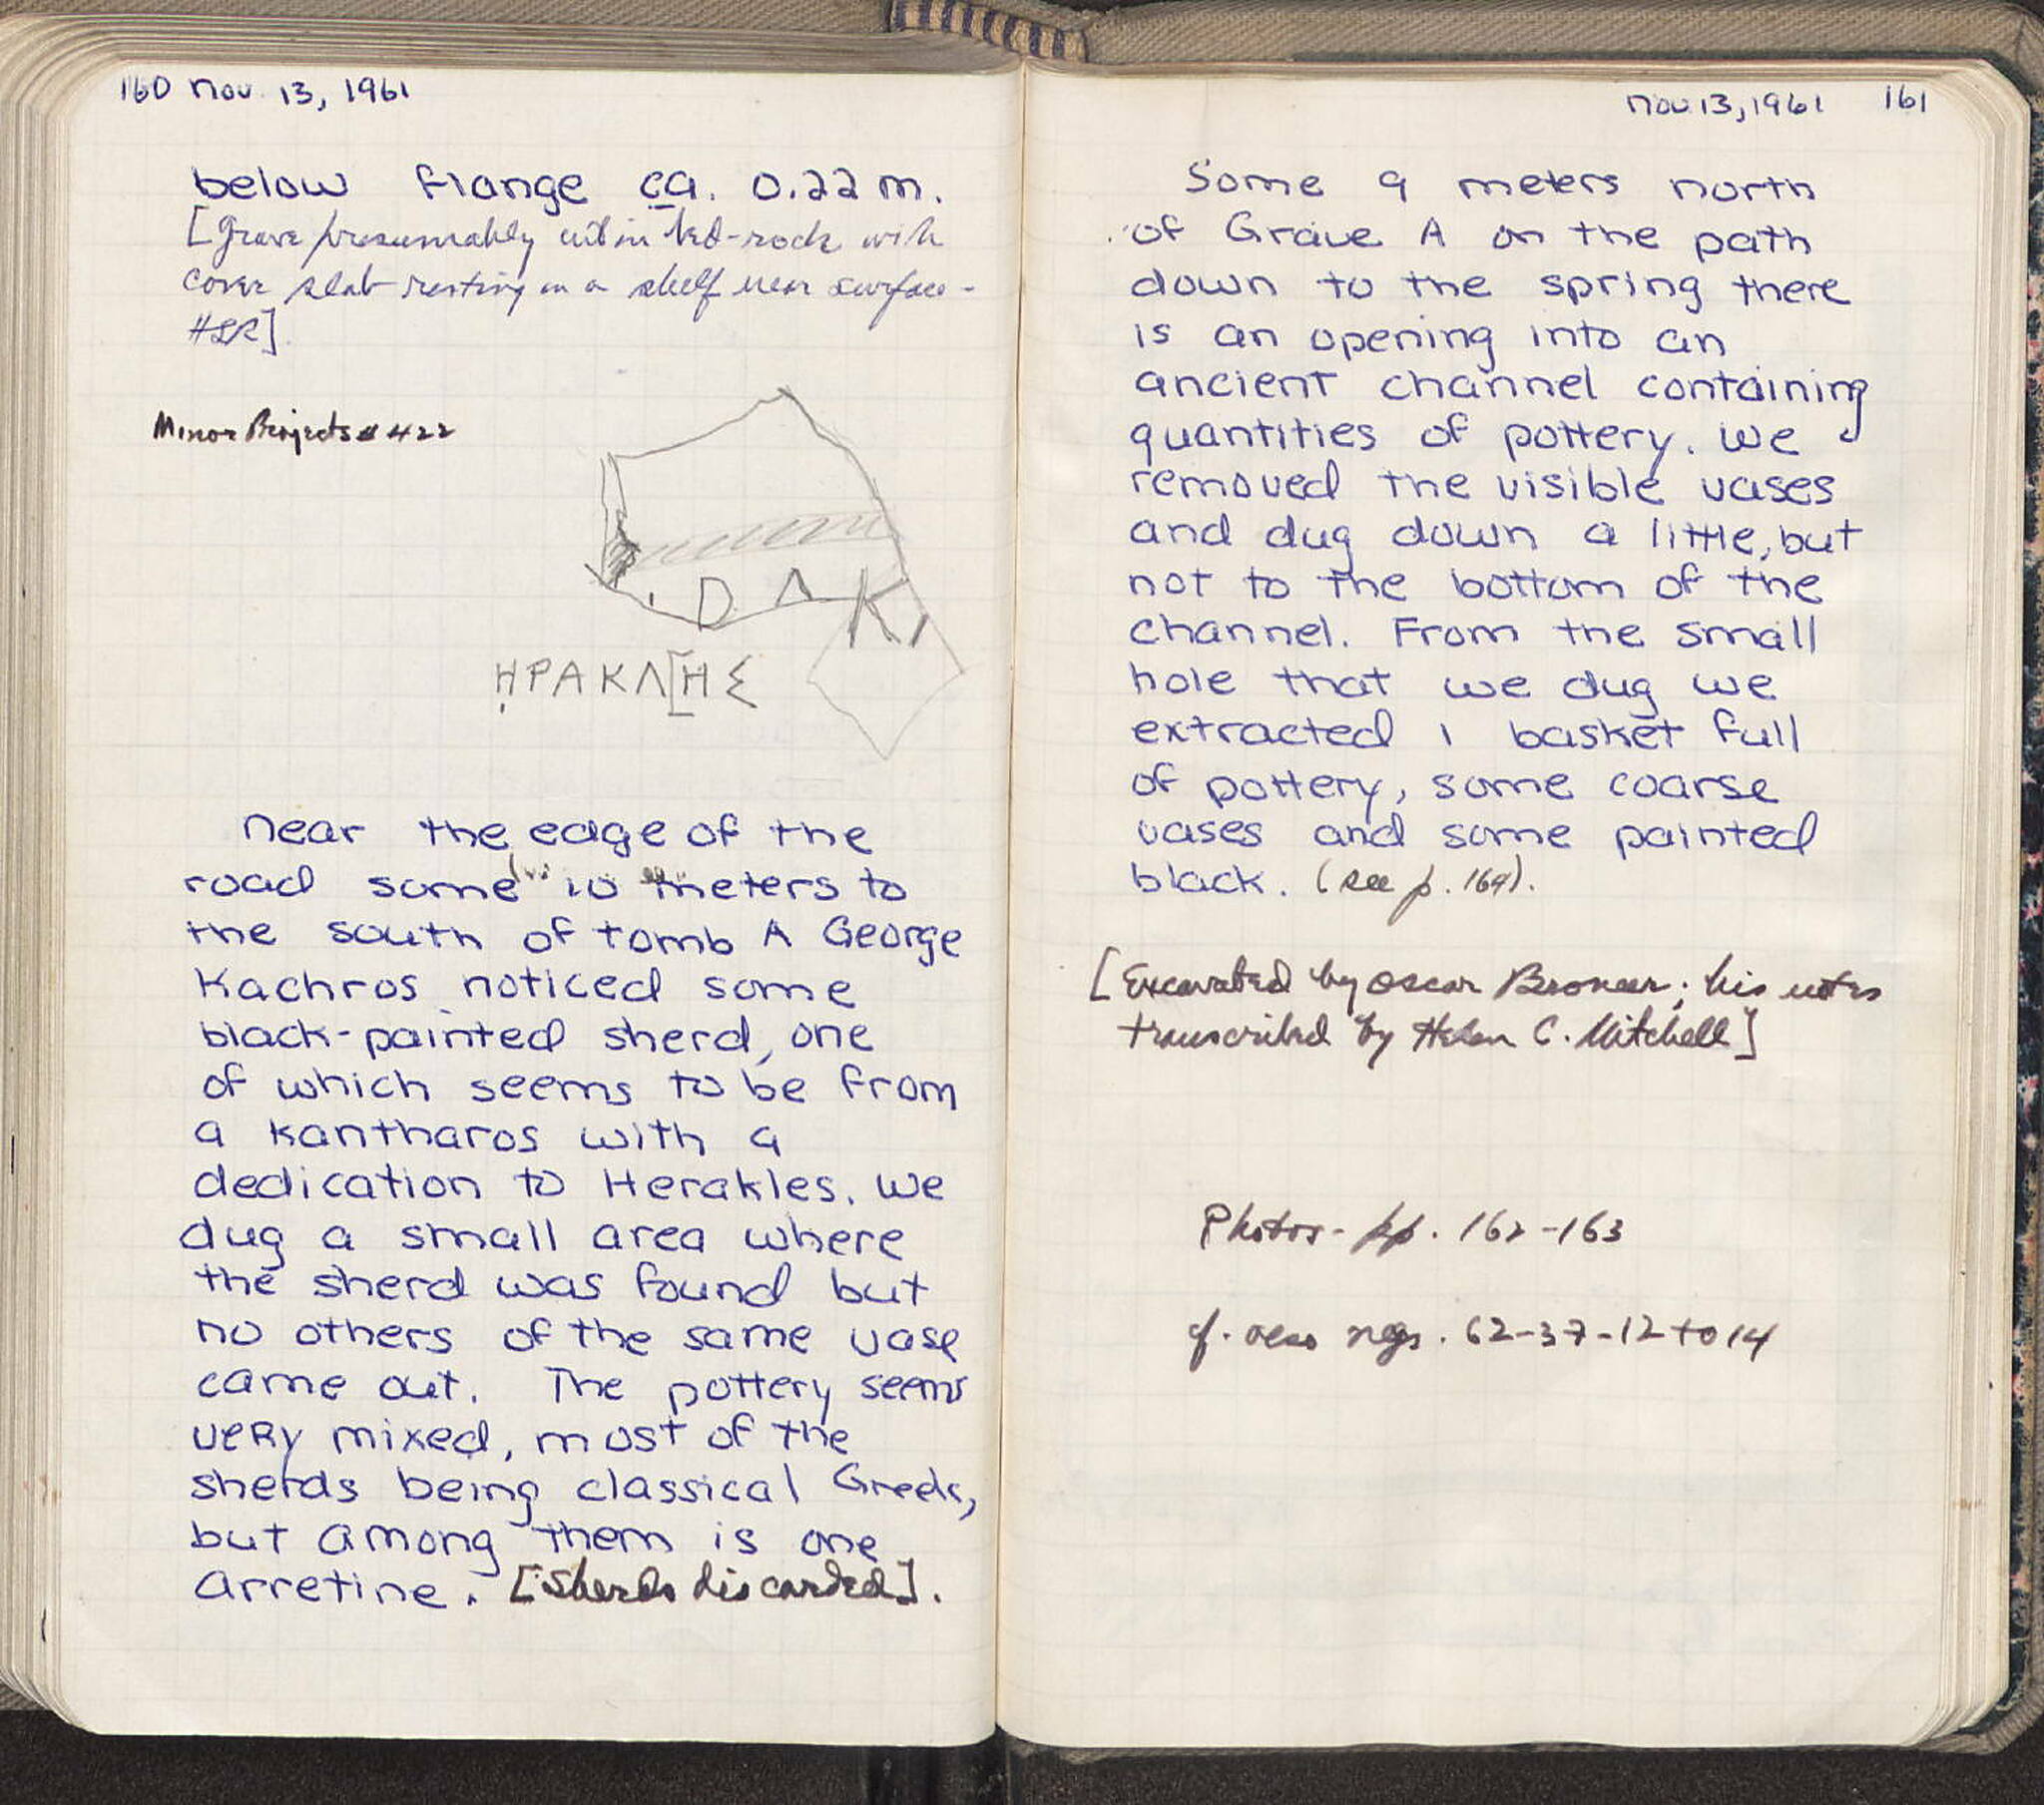 160 Nov. 13, 1961
below flange ca. 0.22 m.
[Grave presumably cut in bed-rock with
cover slab resting on a shelf near surface -
HSR]
Minor Projects # 422
. D Λ K ,
ḤΡΑΚΛ[ΗΣ
Near the edge of the
road some 10 meters to
the south of tomb A George
Kachros noticed some
black-painted sherd, one
of which seems to be from
a kantharos with a
dedication to Herakles. We
dug a small area where
the sherd was found but
no others of the same vase
came out. The pottery seems
very mixed, most of the
sherds being classical Greek,
but among them is one
Arretine. [Sherds discarded].
Nov. 13, 1961 161
Some 9 meters north
of Grave A on the path
down to the spring there
is an opening into an
ancient channel containing
quantities of pottery. We
removed the visible vases
and dug down a little, but
not to the bottom of the
channel. From the small
hole that we dug we
extracted 1 basket full
of pottery, some coarse
vases and some painted
black. (see p. 164).
[Excavated by Oscar Broneer; his notes
transcribed by Helen C. Mitchell]
Photos - pp. 162-163
cf. also negs. 62-37-12 to 14